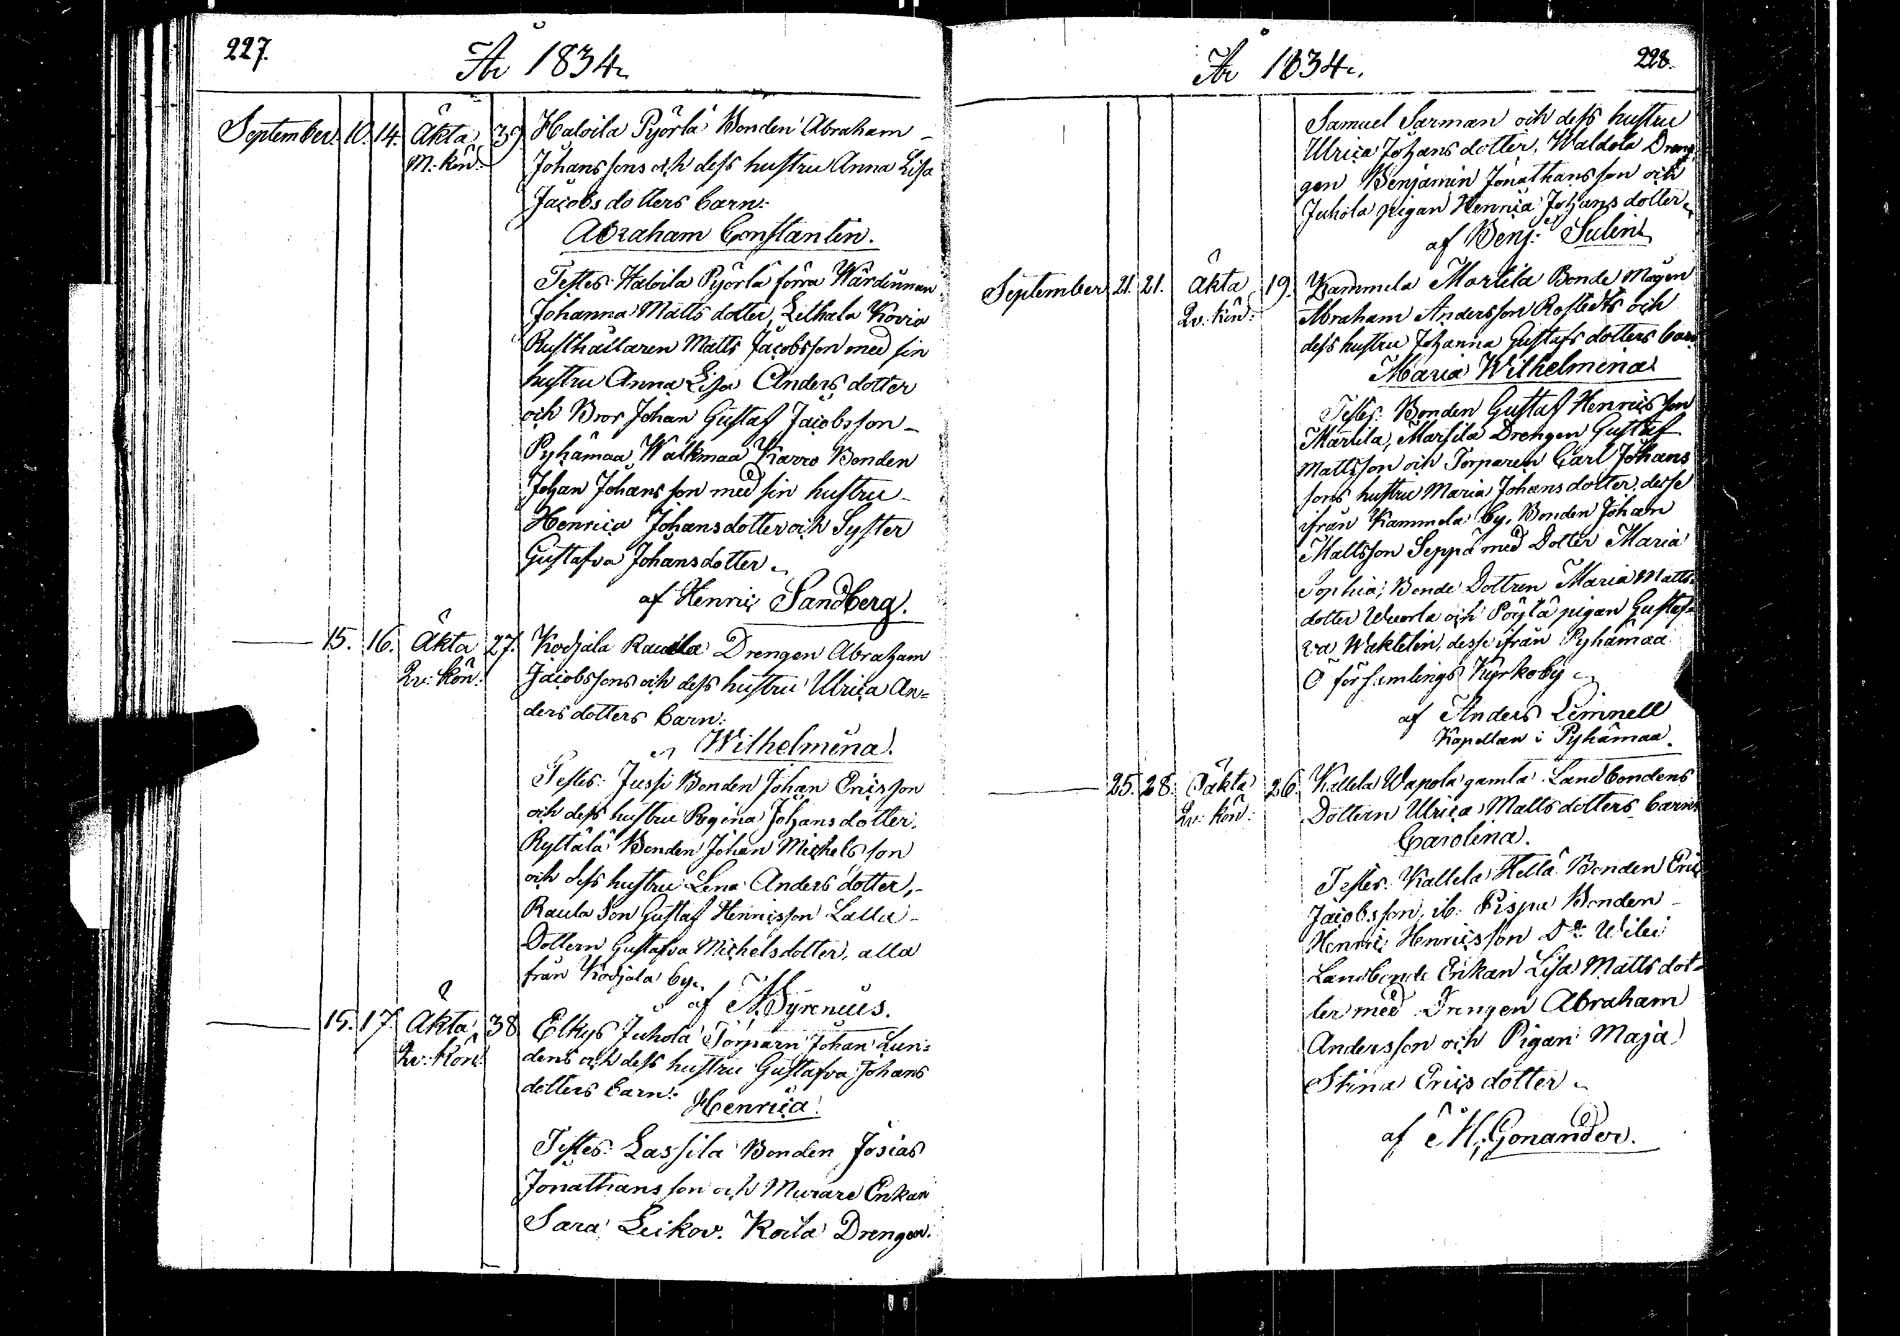 227.
År 1834.
September. 10. 14. Äkta 39 Haloila Pyörlä Bonden Abraham
M: kön: Johanssons och dess hustru Anna Lisa
Jacobsdotters barn:
Abraham Constantin.
Testes: Haloila Pyörlä förra Wärdinnan
Johanna Matts dotter, Lethala Kovio
Rusthållaren Matts Jacobsson med sin
hustru Anna Lisa Anders dotter
och Bror Johan Gustaf Jacobsson
Pyhämaa Walkmaa Karro Bonden
Johan Johansson med sin hustru
Henrica Johansdotter och Syster
Gustafva Johansdotter
af Henric Sandberg.
15. 16. Äkta 27. Kodjala Rau Drengen Abraham
Qv: kön: Jacobssons och dess hustru Ulrica An=
ders dotters barn:
Wilhelmina.
Testes: Jussi Bonden Johan Ericsson
och dess hustru Regina Johansdotter,
Ryttälä Bonden Johan Michelsson
och dess hustru Lena Anders dotter,
Raula Son Gustaf Henricsson Lalla
Dottern Gustafva Michelsdotter, alla
från Kodjala by.
af N. Syrenius.
15. 17. Äkta 38 Elkys Juhola Torparn Johan Lun=
Qv: kön: dens och dess hustru Gustafva Johans
dotters barn:
Henrica.
Testes: Lassila Bonden Josias
Jonathansson och Murare Enkan
Sara Leikov. Koila Drengen.
År 1834.
228.
Samuel Sarman och dess hustru
Ulrica Johansdotter, Waldola Dren=
gen Benjamin Jonathansson och
Juhola pigan Henrica Johansdotter
af Benj: Sulin
September 21. 21. Äkta 19. Kammela Martila Bonde Mågen
Qv: kön: Abraham Andersson Rostedts och
dess hustru Johanna Gustafs dotters barn
Maria Wilhelmina
Testes: Bonden Gustaf Henricsson
Martila, Marsila Drengen Gustaf
Mattsson och Torparen Carl Johans
sons hustru Maria Johansdotter, desse
ifrån Kammela by, Bonden Johan
Mattsson Seppä med Dotter Maria
Sophia, Bonde Dottren Maria Matts=
dotter Wuorla och Pöytä pigan Gustaf=
va Waktelin, desse ifrån Pyhämaa
Ö församlings Kyrkoby
af Anders Limnell
Kapellan i Pyhämaa.
25. 28. Oäkta 26. Kallela Wapola gamla Landbondens
Qv: kön: Dottern Ulrica Mattsdotters barn
Carolina.
Testes: Kallela Hellä Bonden Eric
Jacobsson, ib: Pispa Bonden
Henric Henricsson D:o Wilei
Landbonde Enkan Lisa Mattsdot=
ter med Drengen Abraham
Andersson och Pigan Maja
Stina Ericsdotter
af H: Gonander.